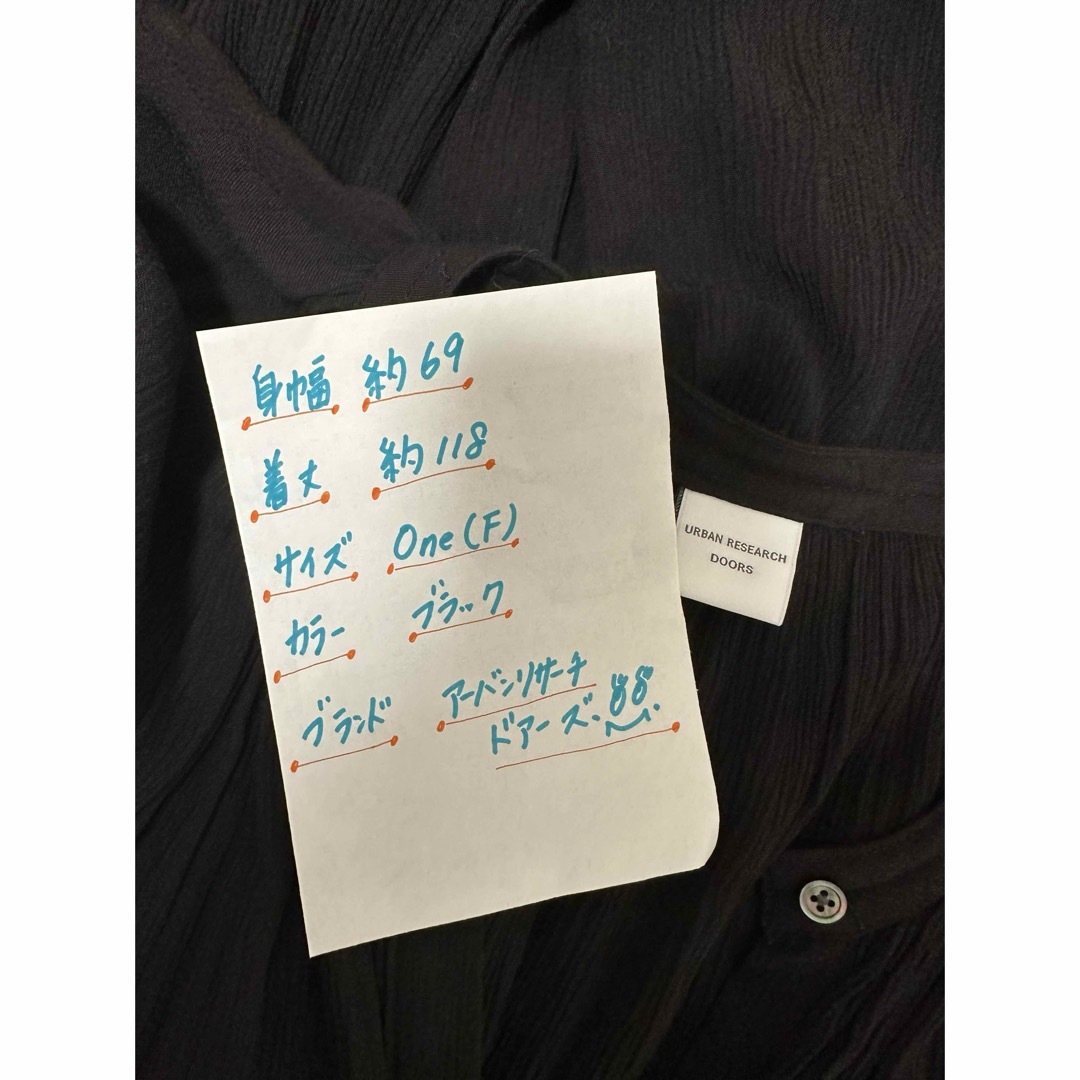 身幅 約69
着丈 約118
サイズ One(F)
カラー ブラック
ブランド アーバンリサーチ
ドアーズ、
URBAN RESEARCH
DOORS